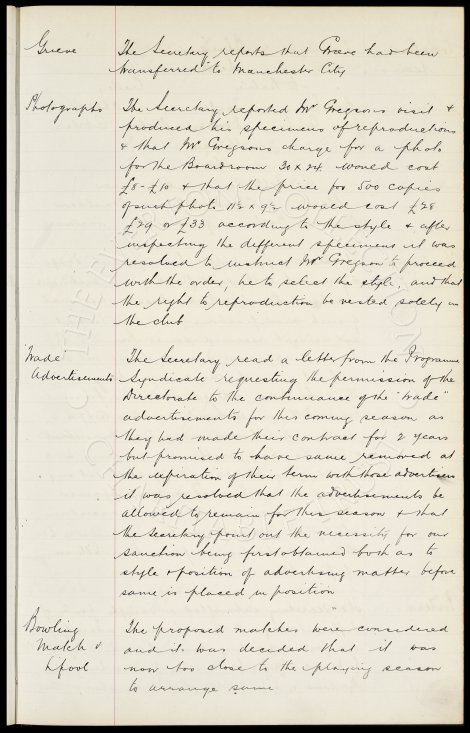 Grieve
The Secretary reports that Grieve had been
transferred to Manchester City
Photographs
The Secretary reported Mr Gregsons visit &
produced his specimens of reproductions
& that Mr Gregsons charge for a photo
for the Boardroom 30 x 24 would cost
£8-£10 & that the price for 500 copies
of such photo 11½ x 9½ would cost £28
£29 or £33 according to the style & after
inspecting the different specimens it was
resolved to instruct Mr Gregson to proceed
with the order, he to select the style, and that
the right to reproduction be vested solely in
the club
"Wade"
Advertisements
The Secretary read a letter from the Programme
Syndicate requesting the permission of the
Directorate to the continuance of the "Wade"
advertisements for this coming season as
they had made their contract for 2 years
but promised to have same removed at
the expiration of their term with those advertisers
it was resolved that the advertisements be
allowed to remain for this season & that
the Secretary point out the necessity for our
sanction being first obtained both as to
style & position of advertising matter before
same is placed in position
Bowling
Match v
L'pool
The proposed matches were considered
and it was decided that it was
now too close to the playing season
to arrange same